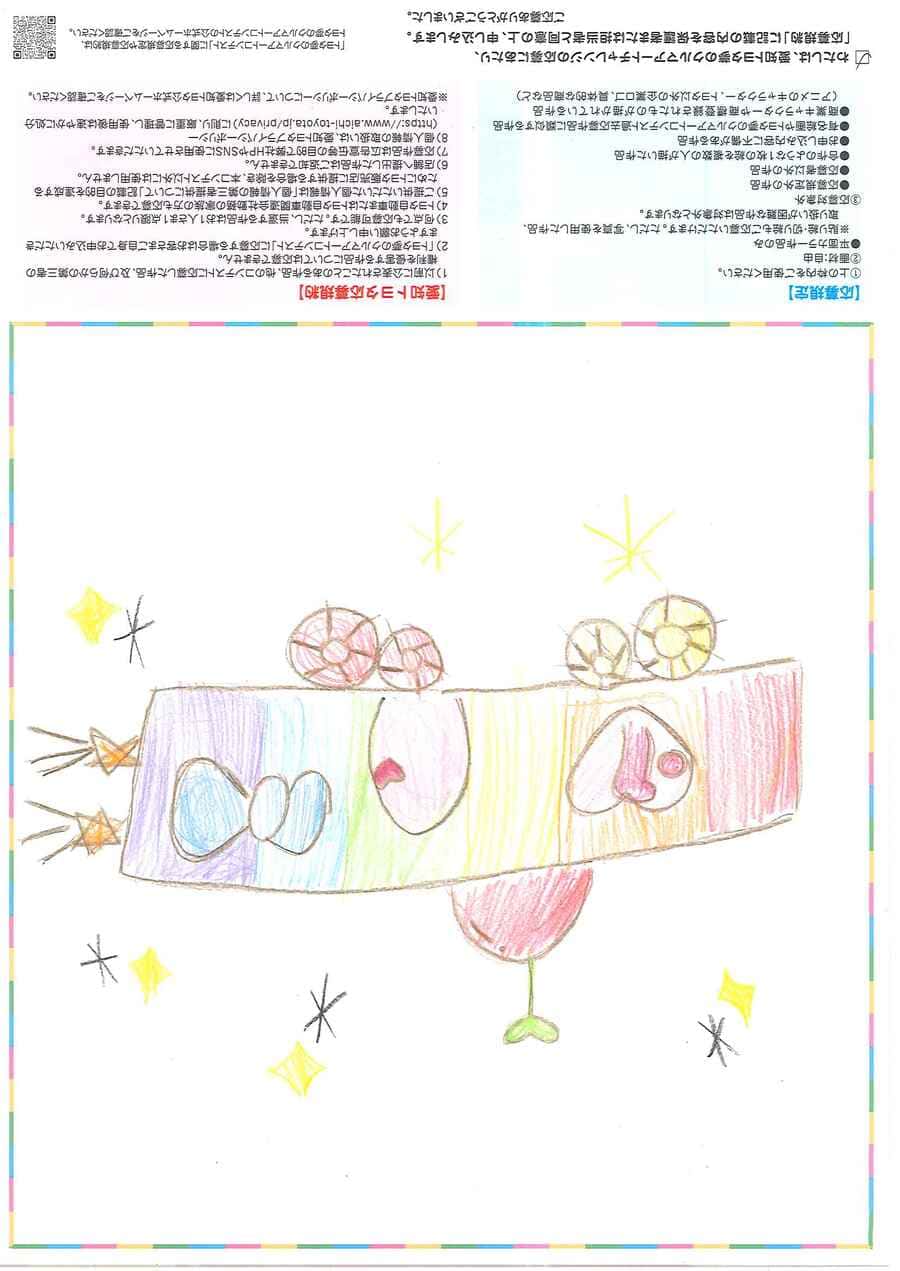 【応募規定】
①上の枠内をご使用ください。
②画材:自由
●平面カラー作品のみ
※貼り絵・切り絵もご応募いただけます。ただし、写真を使用した作品、
取り扱いが困難な作品は対象外となります。
③応募対象外
●応募規定外の作品
●応募者以外の作品
●合作のような1枚の絵を複数の人が描いた作品
●お申し込み内容に不備がある作品
●有名絵画やトヨタ夢のクルマアートコンテスト過去応募作品に類似する作品
●商業キャラクターや商標登録されたものが描かれている作品
(アニメのキャラクター、トヨタ以外の企業ロゴ、具体的な商品など)
【愛知トヨタ応募規約】
1)以前に公表されたことのある作品、他のコンテストに応募した作品、及び何らかの第三者の
権利を侵害する作品については応募できません。
2)「トヨタ夢のクルマアートコンテスト」に応募する場合はお客さまご自身でお申込みいただき
ますようお願い申し上げます。
3)何点でも応募可能です。ただし、当選する作品はお1人さま1点限りとなります。
4)トヨタ自動車またはトヨタ自動車関連会社勤務の家族の方も応募できます。
5)ご提供いただいた個人情報は「個人情報の第三者提供について」記載の目的を達成する
ためにトヨタ販売店に提供する場合を除き、本コンテスト以外には使用しません。
6)店舗へ提出した作品はご返却できません。
7)応募作品は広告宣伝等の目的で弊社HPやSNSに使用させていただきます。
8)個人情報の取扱いは、愛知トヨタプライバシーポリシー
(https://www.aichi-toyota.jp/privacy)に則り、厳重に管理し、使用後は速やかに処分
いたします。
※愛知トヨタプライバシーポリシーについて、詳しくは愛知トヨタ公式ホームページをご確認ください。
わたしは、愛知トヨタ夢のクルマアートチャレンジのご応募にあたり、
「応募規約」に記載の内容を保護者または担当者と同意の上、申し込みします。
ご応募ありがとうございました。
「トヨタ夢のクルマアートコンテスト」に関する応募規定や応募規約は、
トヨタ夢のクルマアートコンテスト公式ホームページをご確認ください。